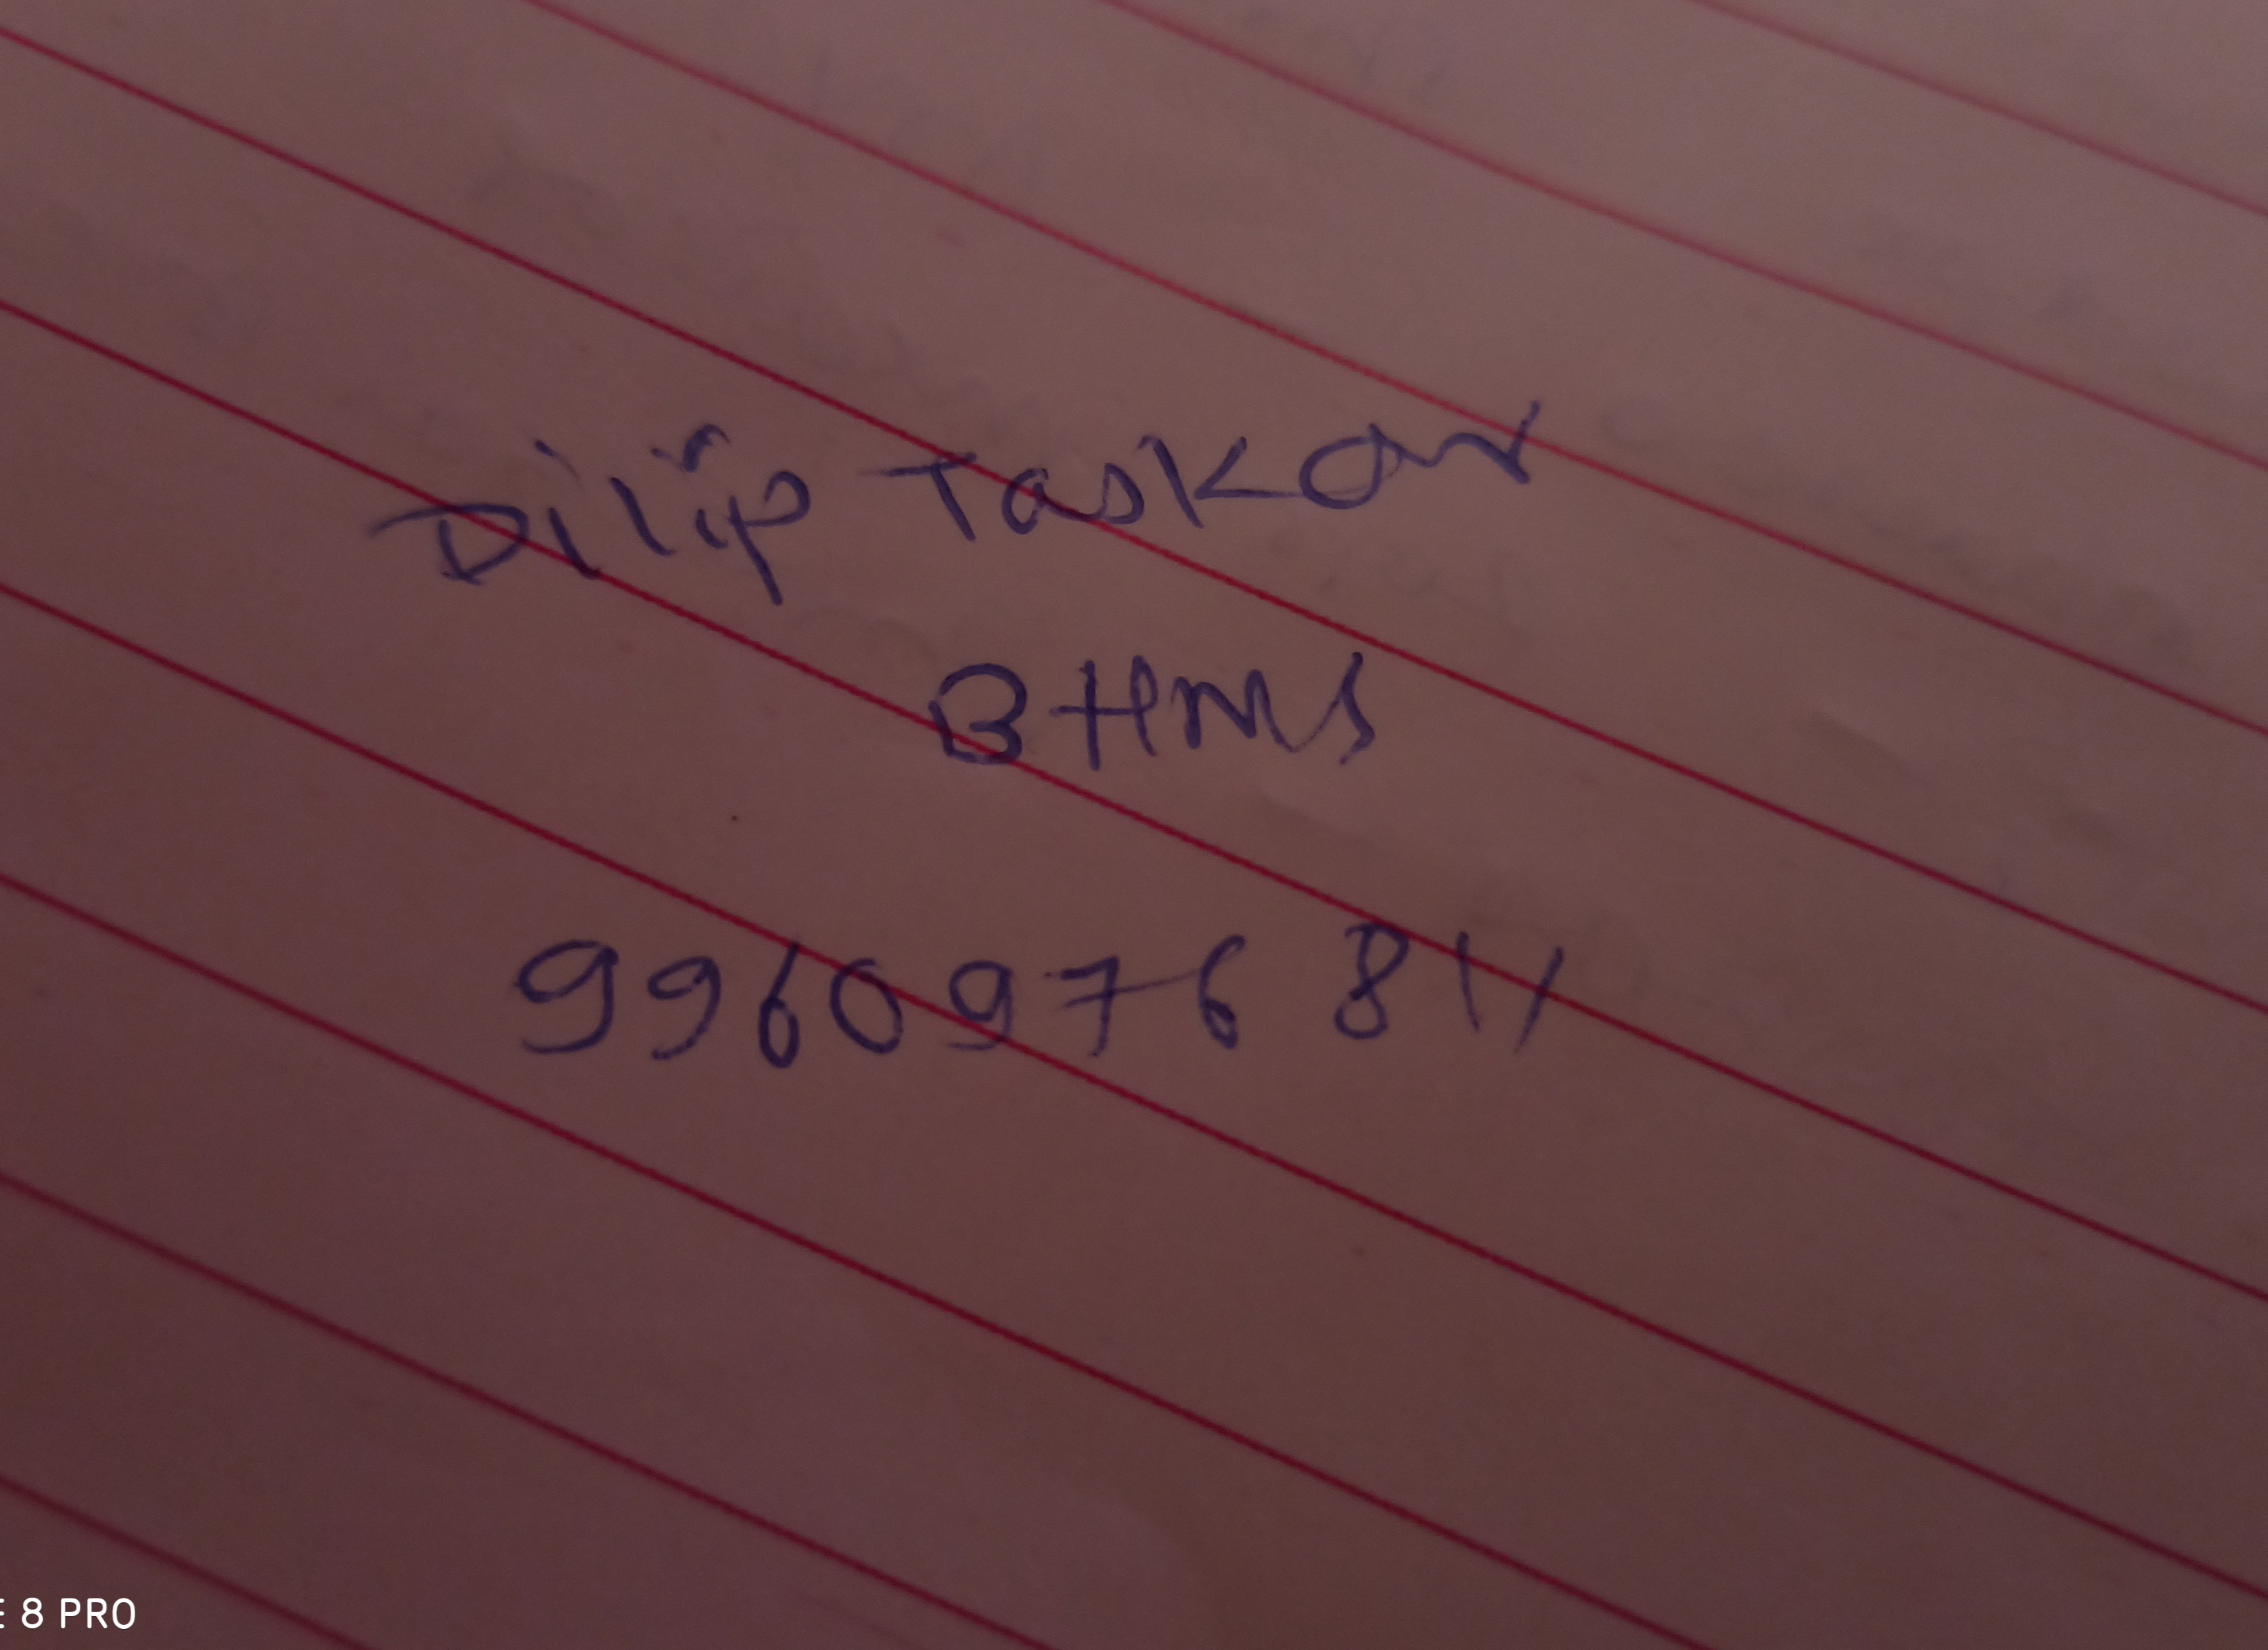 Dilip Taskar
BHMS
9960976811
8 PRO